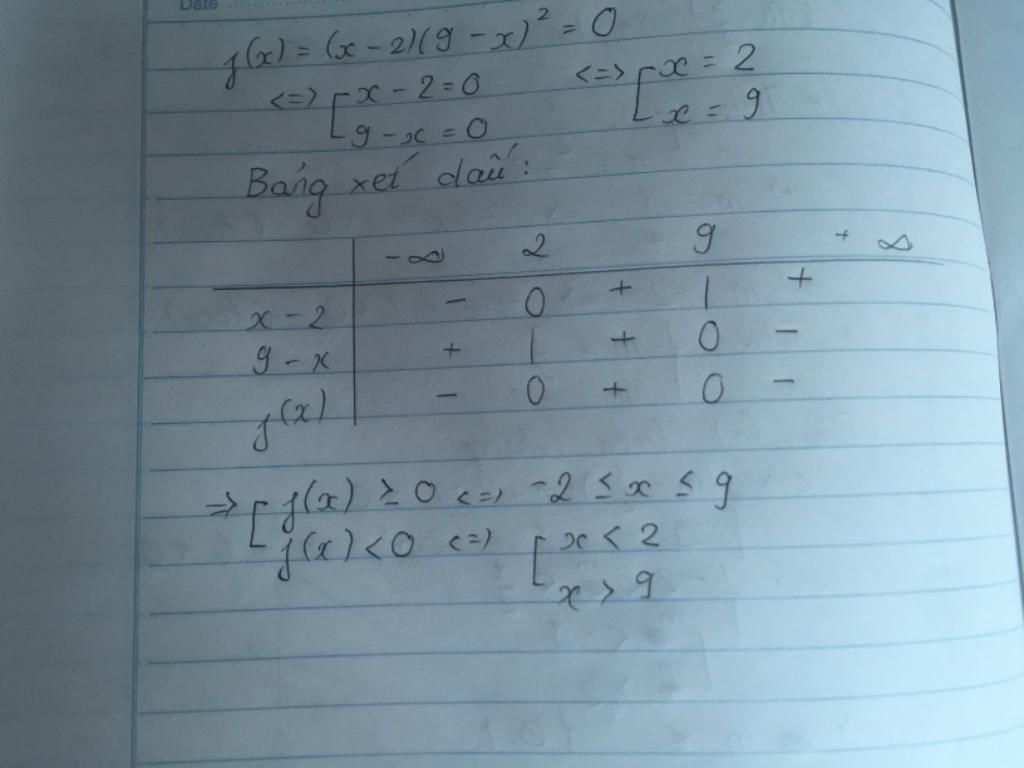 Date
f(x) = (x - 2)(9 - x)² = 0
<=> [ x - 2 = 0 <=> [ x = 2
9 - x = 0 x = 9
Bảng xét dấu:
-∞ 2 9 + ∞
x - 2 - 0 + | +
9 - x + | + 0 -
f(x) - 0 + 0 -
=> [ f(x) ≥ 0 <=> -2 ≤ x ≤ 9
f(x) < 0 <=> [ x < 2
x > 9